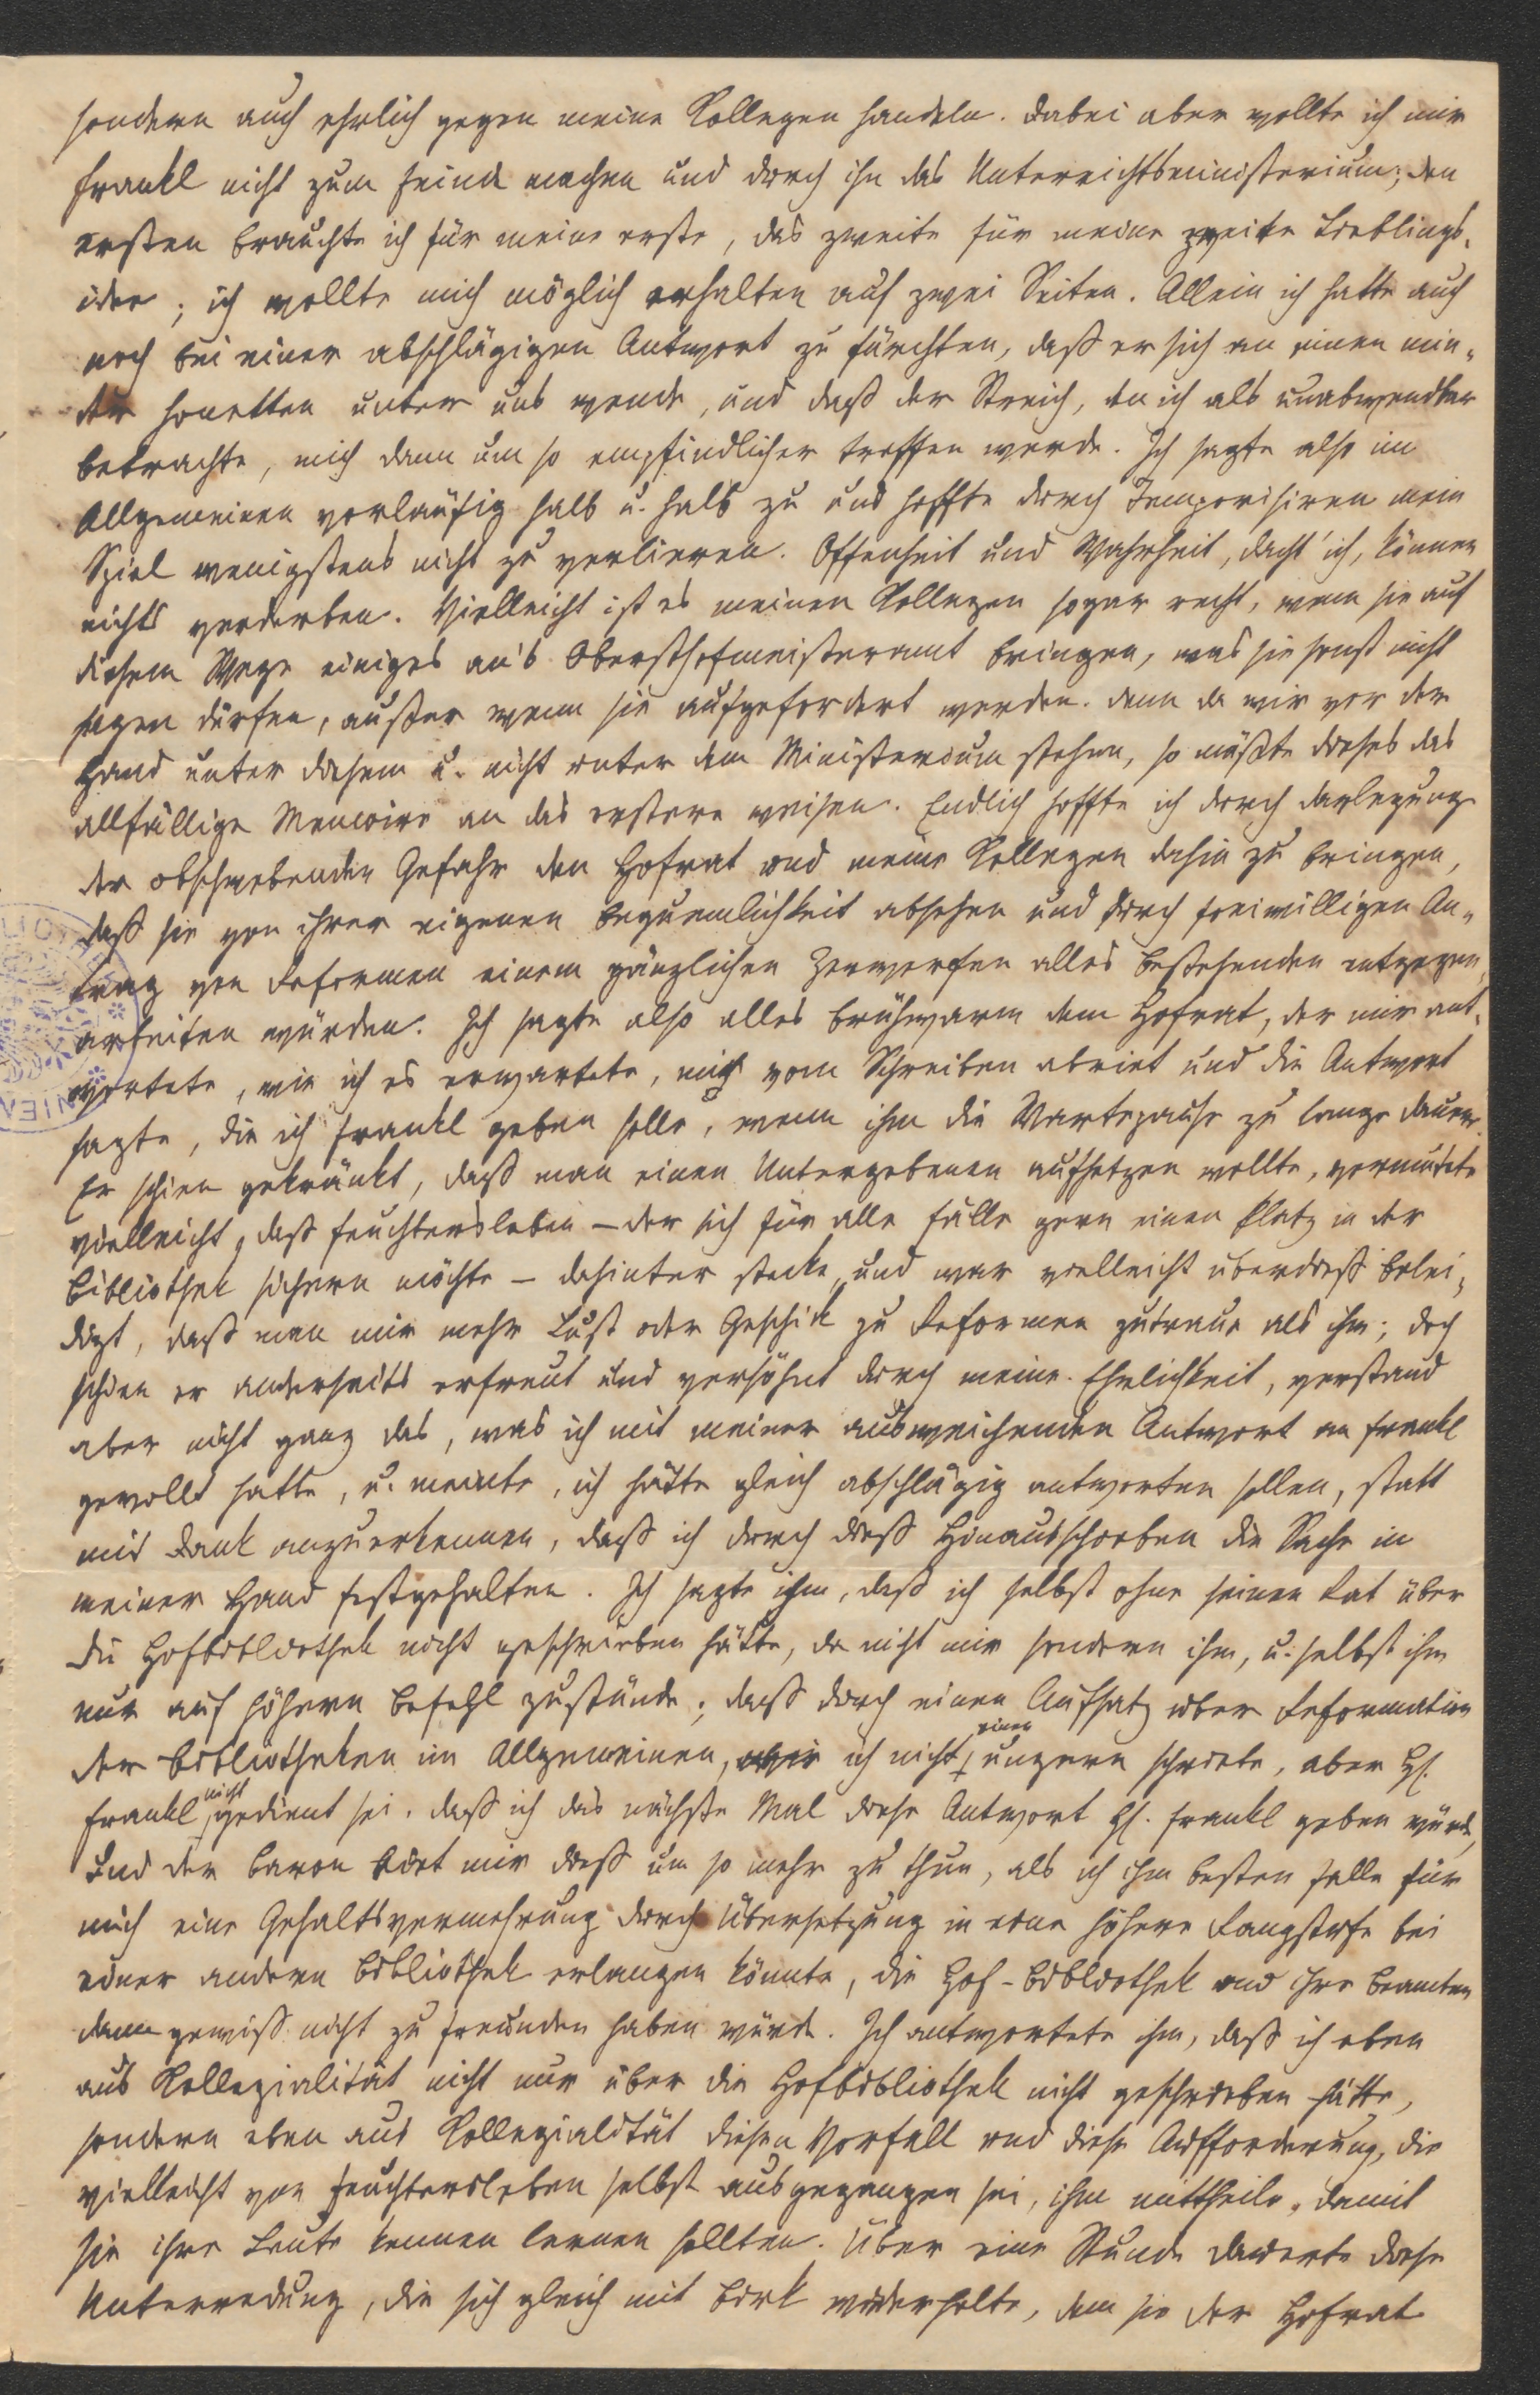 sondern auch ehrlich gegen meine Kollegen handeln. Dabei aber wollte ich mir
Frankl nicht zum Feinde machen und durch ihn das Unterrichtsministerium; den
ersten brauchte ich für meine erste, das zweite für meine zweite Lieblings-
idee; ich wollte mich möglich erhalten auf zwei Seiten. Allein ich hatte auch
noch bei einer abschlägigen Antwort zu fürchten, daß er sich an einen min-
der honetten unter uns wende, und daß der Streich, den ich als unabwendbar
betrachte, mich dann um so empfindlicher treffen werde. Ich sagte also im
Allgemeinen vorläufig halb u. halb zu und hoffte durch Temporisiren mein
Spiel wenigstens nicht zu verlieren. Offenheit und Wahrheit, dacht' ich, können
nichts verderben. Vielleicht ist es meinen Kollegen sogar recht, wenn sie auf
diesem Wege einiges an's Obersthofmeisteramt bringen, was sie sonst nicht
sagen dürfen, außer wenn sie aufgefordert werden. Denn da wir vor der
Hand unter diesem u. nicht unter dem Ministerium stehen, so müßte dieses das
allfällige Memoire an das erstere weisen. Endlich hoffte ich durch Darlegung
der obschwebenden Gefahr den Hofrat und meine Kollegen dahin zu bringen,
daß sie von ihrer eigenen Bequemlichkeit absehen und durch freiwilligen An-
trag von Reformen einem gänzlichen Zerwerfen alles Bestehenden entgegen
arbeiten würden. Ich sagte also alles brühwarm dem Hofrat, der mir ant-
wortete, wie ich es erwartete, mich vom Schreiben abriet und die Antwort
sagte, die ich Frankl geben solle, wenn ihm die Wartepause zu lange dauere.
Er schien gekränkt, daß man einen Untergebenen aufhetzen wollte, vermutete
vielleicht, daß Feuchtersleben – der sich für alle Fälle gern einen Platz in der
Bibliothek sichern möchte – dahinter stecke, und war vielleicht überdieß belei-
digt, daß man mir mehr Lust oder Geschick zu Reformen zutraue als ihm; doch
schien er anderseits erfreut und versöhnt durch meine Ehrlichkeit, verstand
aber nicht ganz das, was ich mit meiner ausweichenden Antwort an Frankl
gewollt hatte, u. meinte, ich hätte gleich abschlägig antworten sollen, statt
mit Dank anzuerkennen, daß ich durch dieß Hinausschieben die Sache in
meiner Hand festgehalten. Ich sagte ihm, daß ich selbst ohne seinen Rat über
die Hofbibliothek nicht geschrieben hätte, da nicht mir sondern ihm, u. selbst ihm
nur auf höhern Befehl zustände; daß durch einen Aufsatz über Reformation
der Bibliotheken im Allgemeinen, ich nicht einen ungern schriebe, aber H.
Frankl nicht gedient sei. daß ich das nächste Mal diese Antwort H. Frankl geben würde,
Und der Baron riet mir dieß um so mehr zu thun, als ich ihm besten Falls für
mich eine Gehaltsvermehrung durch Übersetzung in eine höhere Rangstufe bei
einer andern Bibliothek erlangen könnte, die Hof-Bibliothek und ihre Beamten
dann gewiß nicht zu Freunden haben würde. Ich antwortete ihm, daß ich eben
aus Kollegialität nicht nur über die Hofbibliothek nicht geschrieben hätte,
sondern eben aus Kollegialität diesen Vorfall und diese Aufforderung, die
vielleicht von Feuchtersleben selbst ausgegangen sei, ihm mittheile, damit
sie ihre Leute kennen lernen sollten. Über eine Stunde dauerte diese
Unterredung, die sich gleich mit Birk wiederholte, dem sie der Hofrat